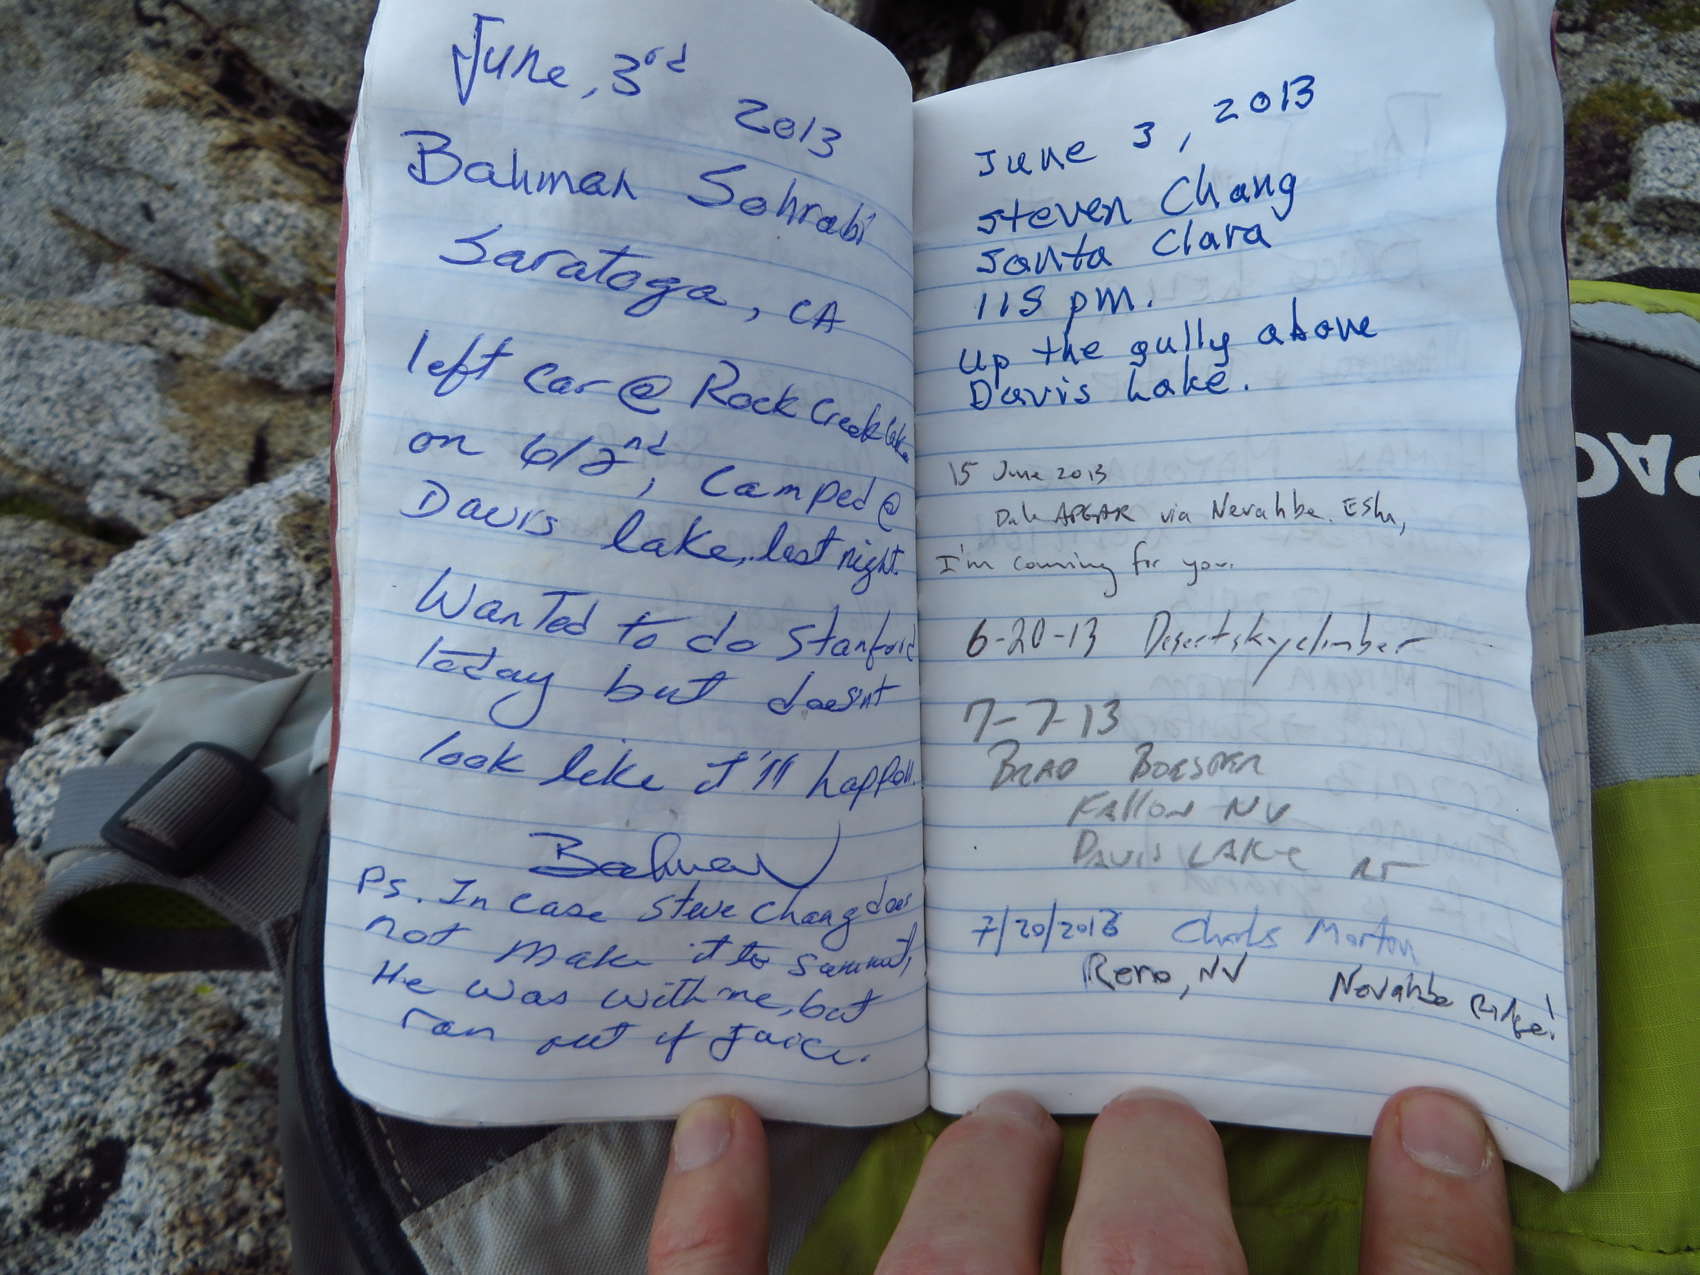 June, 3rd 2013
Bahman Sohrabi
Saratoga, CA
left car @ Rock Creek Lake
on 6/2nd, Camped @
Davis lake, last night.
Wanted to do Stanford
today but doesn't
look like I'll happen.
Bahman
Ps. In case Steve Chang does
not make it to summit,
He was with me, but
ran out of juice.
June 3, 2013
Steven Chang
Santa Clara
115 pm.
Up the gully above
Davis Lake.
15 June 2013
Dale APGAR via Nevahbe. Esha,
I'm coming for you.
6-20-13 Desertskyclimber
7-7-13
BRAD
FALLON NV
DAVIS LAKE RT
7/20/2013 Charles Morton
Reno, NV Nevahbe Ridge!
PAC